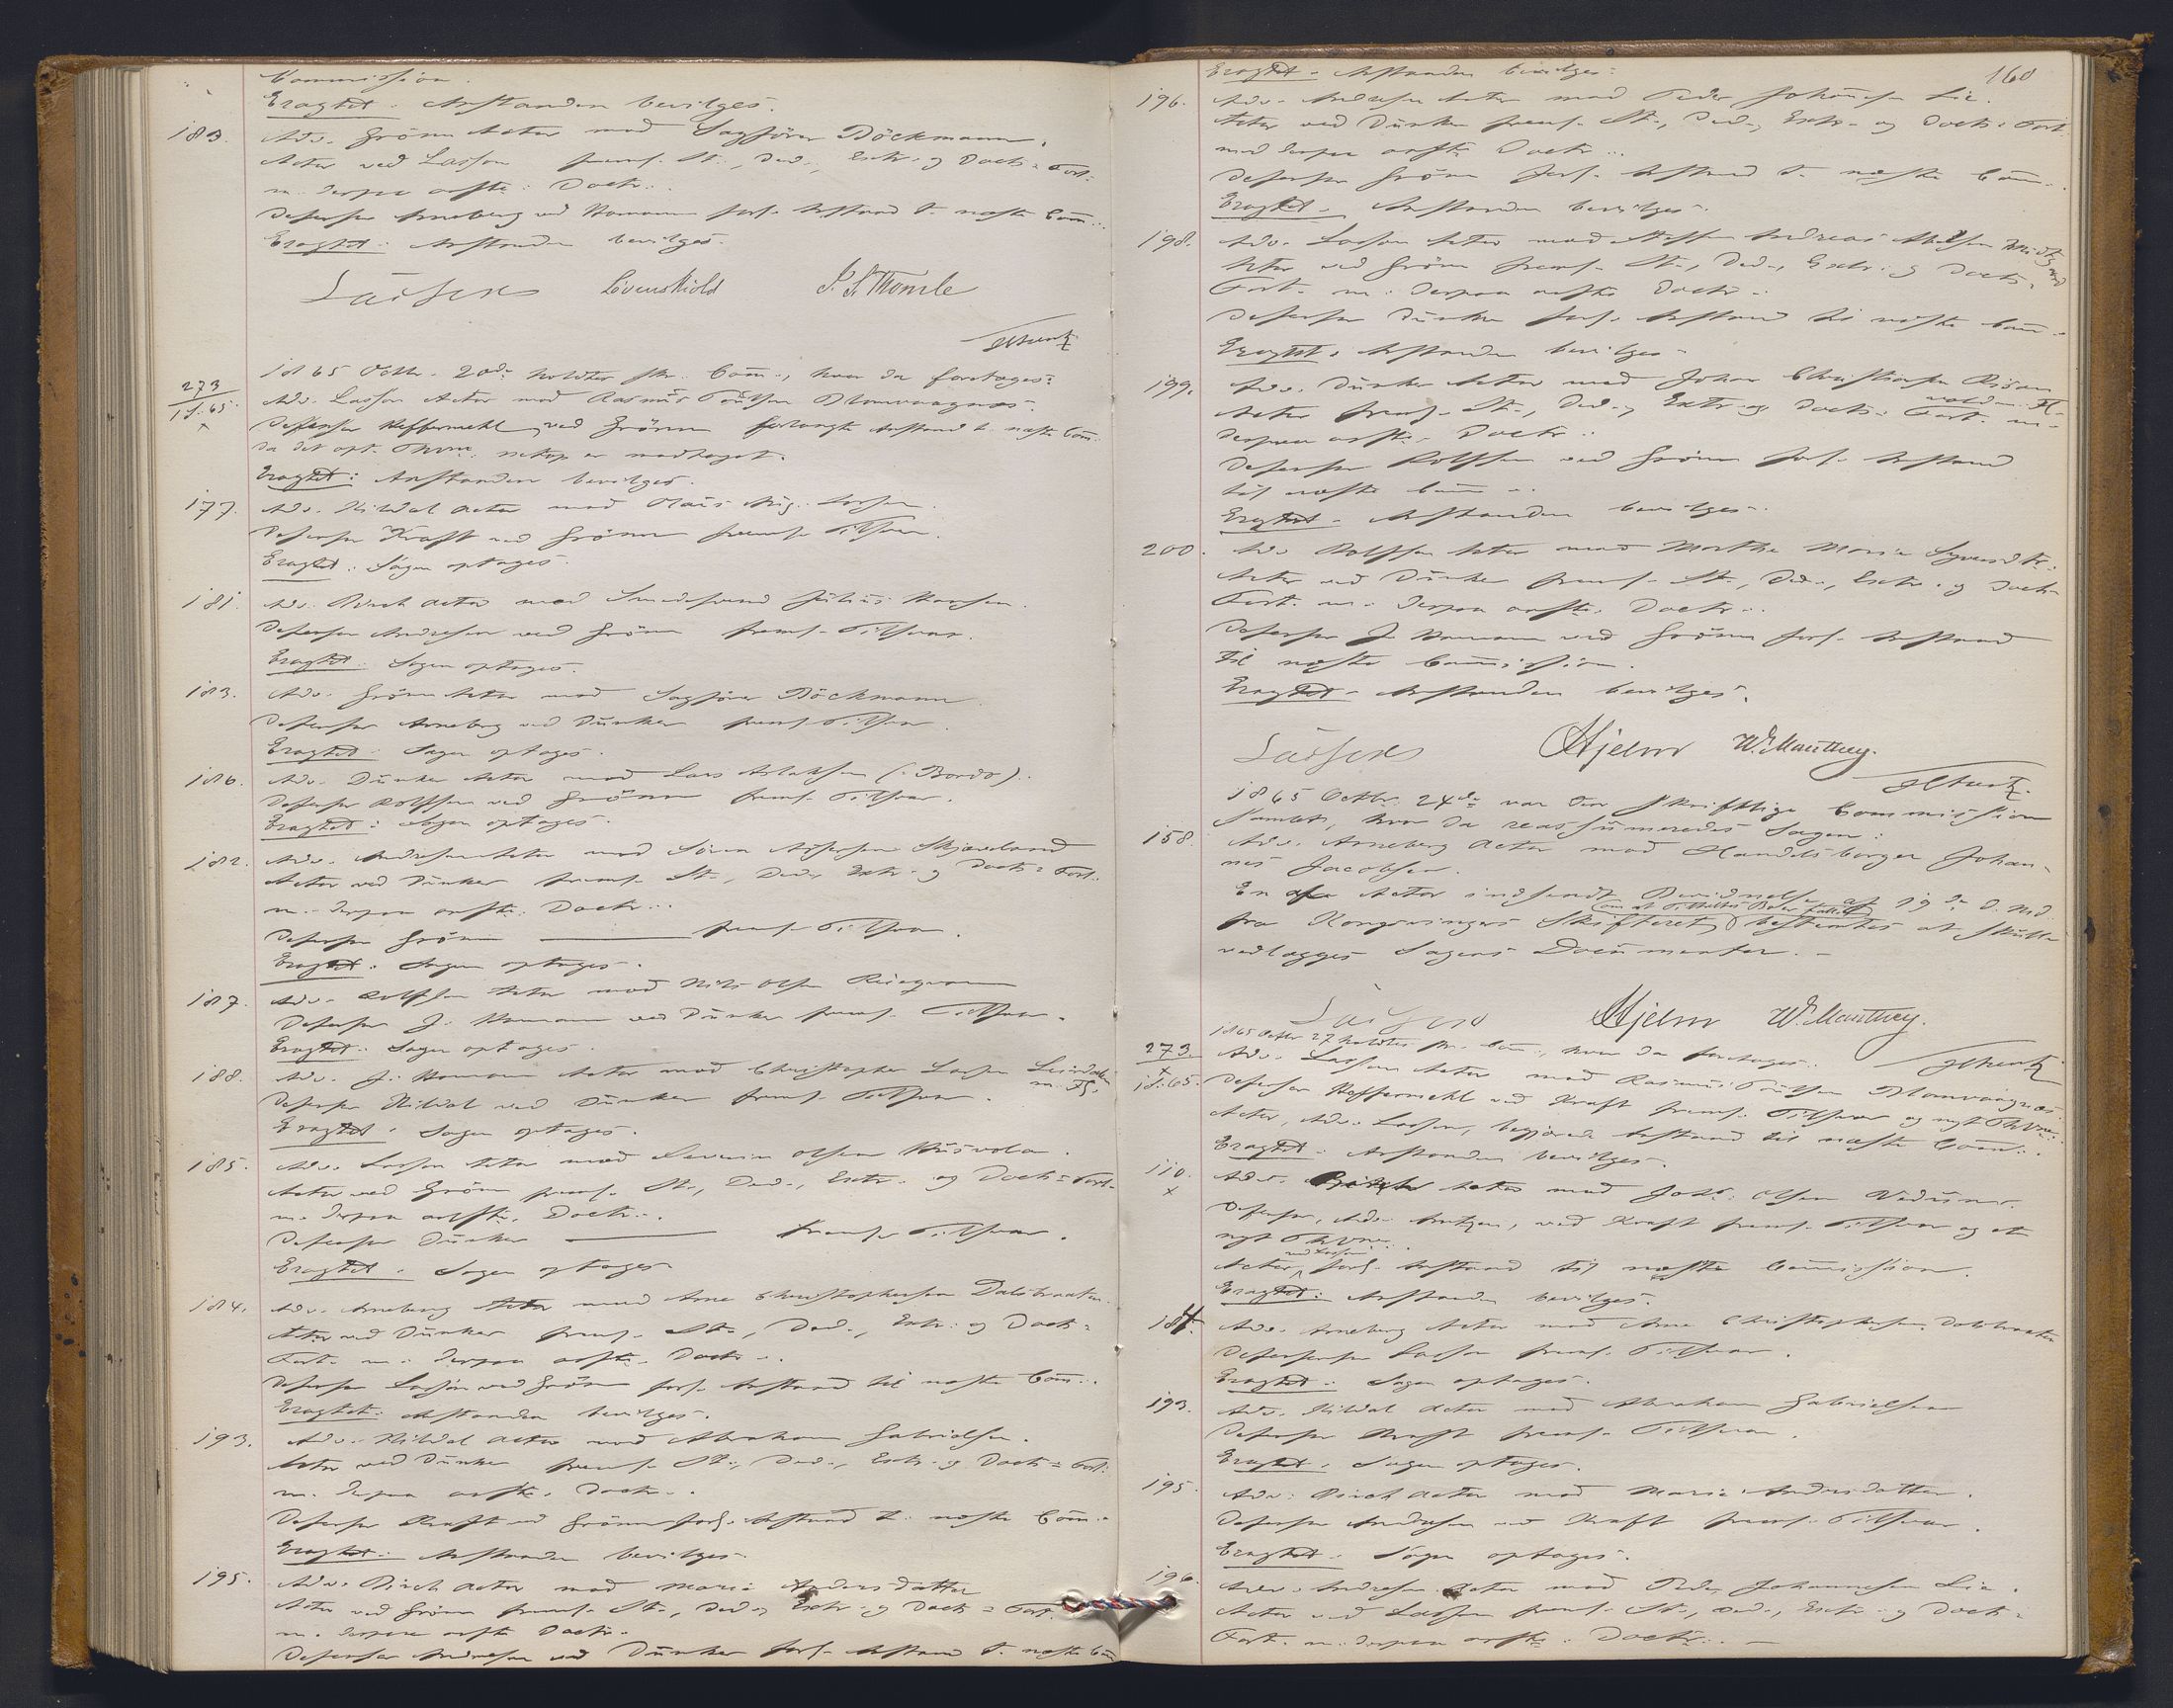 Commission.
Eragtet: Anstanden bevilges.
183. Adv. Grönn Actor mod Sagförer Böckmann.
Actor ved Lasson frems. St., Ded., Extr. og Doct: Fort:
m. derpaa anfte: Doctr:.
Defensor Arneberg ved Homann forl. Anstand t. næste Com:.
Eragtet: Anstanden bevilges.
Lasson Lövenskiold J. S. Thomle
1865 Octbr. 20de holdtes skr. Com:, hvor da foretages:
273/18.65. Adv. Lasson Actor mod Rasmus
Defensor Keffermehl ved Grönn forlangte Anstand t. næste Com:
da det opt. netop er modtaget.
Eragtet: Anstanden bevilges.
177. Adv. Kildal Actor mod
Defensor Kraft ved Grönn frems. Tilsvar.
Eragtet: Sagen optages.
181. Adv. Birch Actor mod Smedesvend Julius Hansen.
Defensor Andresen ved Grönn frems. Tilsvar.
Eragtet: Sagen optages.
183. Adv. Grönn Actor mod Sagförer Böckmann
Defensor Arneberg ved Dunker frems. Tilsvar.
Eragtet: Sagen optages.
186. Adv. Dunker Actor mod Lars Aslaksen (:Bordo).
Defensor Rolfsen ved Grönn frems. Tilsvar.
Eragtet: Sagen optages.
182. Adv. Andresen Actor mod Sören Skjæveland
Actor ved Dunker frems. St., Ded., Extr. og Doct: Fort:
m. derpaa anfte: Doctr:.
Defensor Grönn frems. Tilsvar.
Eragtet: Sagen optages.
187. Adv. Rolfsen Actor mod Nils Olsen
Defensor J. Homann ved Dunker frems. Tilsvar.
Eragtet: Sagen optages.
188. Adv. J. Homann Actor mod Christopher Larsen m. Fl.
Defensor Kildal ved Dunker frems. Tilsvar.
Eragtet: Sagen optages.
185. Adv. Lasson Actor mod Severin Olsen Husvolen.
Actor ved Grönn frems. St., Ded., Extr. og Doct: Fort.
m. derpaa anfte. Doctr:.
Defensor Dunker frems. Tilsvar.
Eragtet: Sagen optages
184. Adv. Arneberg Actor mod Arne Christophersen Dalsbraaten
Actor ved Dunker frems. St., Ded., Extr. og Doct:
Fort. m. derpaa anfte. Doctr:.
Defensor Lasson ved Grönn forl. Anstand til næste Com:.
Eragtet: Anstanden bevilges.
193. Adv. Kildal Actor mod Abraham Gabrielsen.
Actor ved Dunker frems. St., Ded., Extr. og Doct: Fort:
m. derpaa anfte. Doctr:.
Defensor Kraft ved Grönn forl. Anstand t. næste Com:.
Eragtet: Anstanden bevilges.
195. Adv. Birch Actor mod Maria Andersdatter
Actor ved Grönn frems. St., Ded., Extr. og Doct: Fort.
m. derpaa anfte Doctr.
Defensor Andresen ved Dunker forl. Anstand t. næste Com
160
Eragtet. Anstanden bevilges.
196. Adv. Andresen Actor mod Peder Johannesen Lie.
Actor ved Dunker frems. St., Ded., Extr. og Doct: Fort.
med derpaa anfte Doctr:.
Defensor Grönn forl. Anstand t. næste Com:.
Eragtet. Anstanden bevilges.
198. Adv. Lasson Actor mod Andreas
Actor ved Grönn frems. St., Ded., Extr. og Doct:
Fort. m. derpaa anfte Doctr:.
Defensor Dunker forl. Anstand til næste Com:.
Eragtet. Anstanden bevilges.
199. Adv. Dunker Actor mod Johan Christiansen m. Fl.
Actor frems. St., Ded., Extr. og Doct: Fort. m.
derpaa anfte. Doctr:.
Defensor Rolfsen ved Grönn forl. Anstand
til næste Com:.
Eragtet. Anstanden bevilges.
200. Adv. Rolfsen Actor mod Marthe Maria Syversdtr.
Actor ved Dunker frems. St., Ded., Extr. og Doct:
Fort. m. derpaa anfte. Doctr:.
Defensor J. Homann ved Grönn forl. Anstand
til næste Commission.
Eragtet. Anstanden bevilges.
Lasson Hjelm W. Manthey.
1865 Octbr. 24de var den skriftlige Commission
samlet, hvor da reassumeredes Sagen:
158. Adv. Arneberg Actor mod Handelsborger Johan-
nes Jacobsen.
En af Actor indsendt Bevidnelse af 19de d. Md.
fra Kongsvingers Skifteret bestemtes at skulle
vedlægges Sagens Documenter.
Lasson Hjelm W. Manthey.
1865 Octbr 27 holdtes skr. Com:, hvor da foretages:
273/18.65. Adv. Lasson Actor mod Rasmus
Defensor Keffermehl ved Kraft frems. Tilsvar og nyt
Actor, Adv. Lasson, begjærede Anstand til næste Com:.
Eragtet. Anstanden bevilges.
110. Adv. Birch Actor mod Johs. Olsen
Defensor, Adv. ved Kraft frems. Tilsvar og et
nyt
Actor ved Lasson forl. Anstand til næste Commission.
Eragtet: Anstanden bevilges.
184. Adv. Arneberg Actor mod Arne Christophersen Dalsbraaten
Defensor Lasson frems. Tilsvar.
Eragtet: Sagen optages.
193. Adv. Kildal Actor mod Abraham Gabrielsen
Defensor Kraft frems. Tilsvar.
Eragtet. Sagen optages.
195. Adv: Birch Actor mod Maria Andersdatter.
Defensor Andresen ved Kraft frems. Tilsvar.
Eragtet: Sagen optages.
196. Adv. Andresen Actor mod Peder Johannesen Lie.
Actor ved Lasson frems. St., Ded., Extr. og Doct:
Fort. m. derpaa anfte: Doctr:.